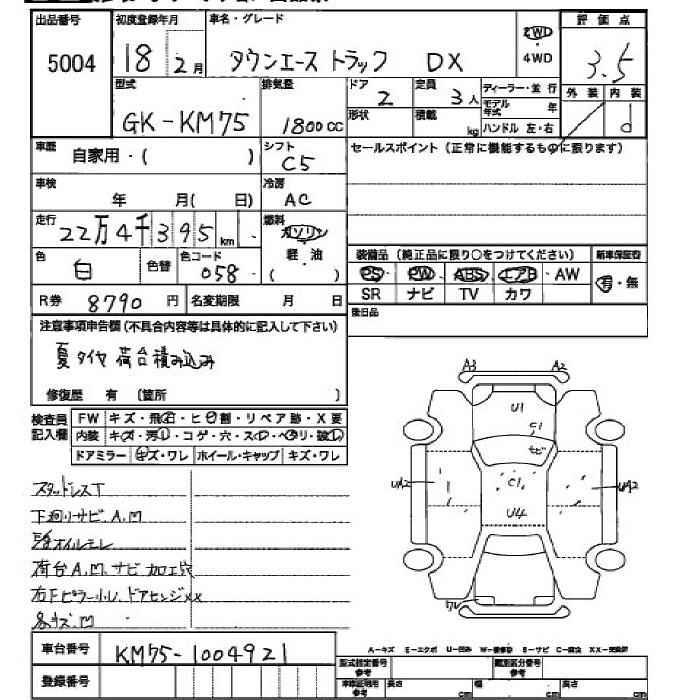 出品番号 初度登録年月 車名・グレード 評価点
5004 18年 2月 タウンエース トラック DX 2WD・4WD 3.5
型式 排気量 ドア 定員 ディーラー・並行 外装 内装
GK-KM75 1800cc 2 3人 モデル年式 年 d
形状 積載 kg ハンドル 左・右
車歴 自家用・( ) シフト C5 セールスポイント(正常に機能するものに限ります)
車検 年 月( 日) 冷房 AC
走行 22万4千395km 燃料 ガソリン
軽・油 ( )
色 白 色替 色コード 058 装備品(純正品に限り○をつけてください) 新車保証書
PS・PW・ABS・エアB・AW 有・無
R券 8790円 名変期限 月 日 SR ナビ TV カワ
後日品
注意事項申告欄(不具合内容等は具体的に記入して下さい)
夏タイヤ 荷台積み込み
修復歴 有 (箇所 )
検査員記入欄 FW キズ・飛石・ヒビ割・リペア跡・X要
内装 キズ・汚れ・コゲ・穴・スレ・ヘタリ・破れ
ドアミラー キズ・ワレ ホイール・キャップ キズ・ワレ
スタッドレスT
下廻りサビ、A.M
オイルモレ
荷台A.M、サビ 加工穴
右Fピラー小U、ドアヒンジXX
A3 A2
U1
C1
サビ
UA2 C1 UA2
U4
ワレ
車台番号 KM75-1004921
登録番号
A-キズ E-エクボ U-凹み W-補修跡 S-サビ C-腐食 XX-交換済
型式指定番号 参考 類別区分番号 参考
車体証明用 参考 長さ cm 幅 cm 高さ cm